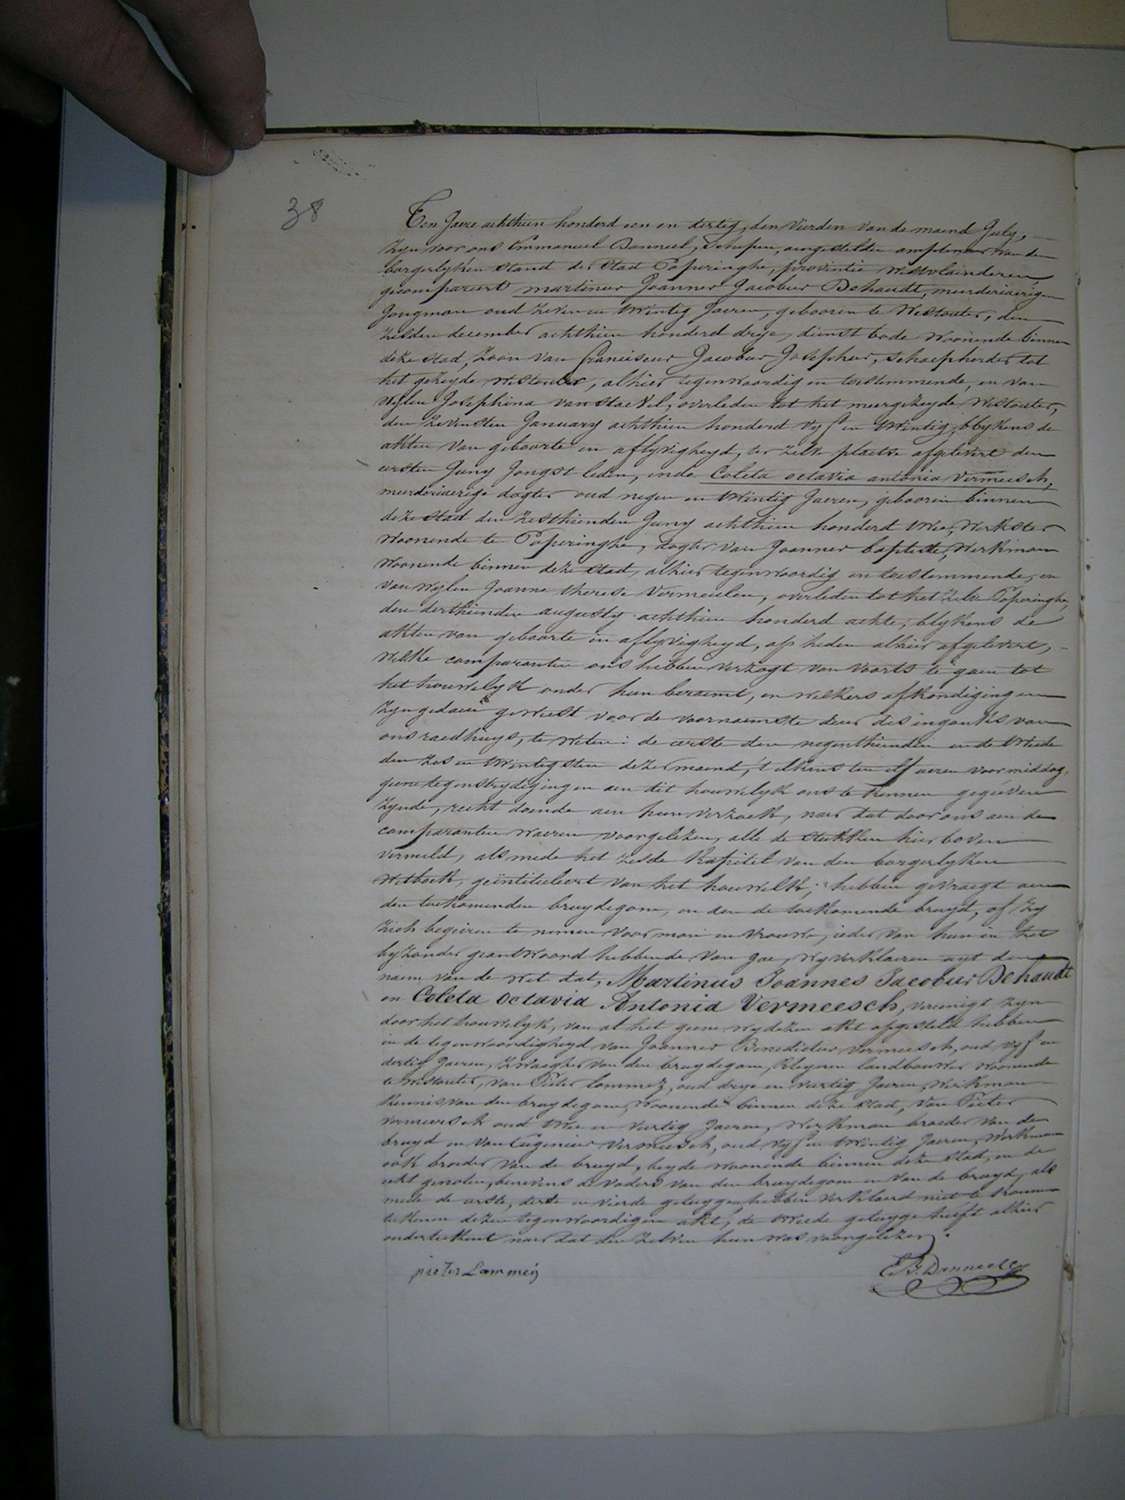 38
Ten Jaere achthien honderd een en dertig, den vierden van de maend July,
Zyn voor ons Emmanuel Danneel, Schepen, aengestelden amptenaer van den
borgerlyken stand der Stad Poperinghe, provintie Westvlaenderen
gecompareert martinus Joannes Jacobus Dehaudt, meerderiaerigen
Jongman oud zeven en twintig Jaeren, gebooren te Westouter, den
december achthien honderd drye, dienst bode woonende binnen
deze stad, zoon van Franciscus Jacobus Josephus, schaepherder tot
het gezeyde Westouter, alhier tegenwoordig en toestemmende, en van
wylen Josephina van Staevel, overleden tot het meergezeyde Westouter,
den January achthien honderd vyf en twintig, blykens de
akten van geboorte en aflyvigheyd, ter zelve plaetse afgelevert den
eersten Juny Jongst leden, ende Coleta octavia antonia Vermeesch,
meerderiaerige dogter oud negen en twintig Jaeren, gebooren binnen
deze Stad den zesthienden Juny achthien honderd twee, werkster
woonende te Poperinghe, dogter van Joannes baptiste, werkman
woonende binnen deze stad, alhier tegenwoordig en toestemmende, en
van wylen Joanna therese Vermeulen, overleden tot het zelve Poperinghe,
den derthienden augusty achthien honderd achte, blykens de
akten van geboorte en aflyvigheyd, op heden alhier afgelevert,
welke comparanten ons hebben verzogt van voorts te gaen tot
het houwelyk onder hun beraemt, en welkers afkondigingen
zyn gedaen geweest voor de voornaemste deur des ingangs van
ons raedhuys, te weten: de eerste den negenthienden en de twede
den zes en twintigsten dezer maend, t'elkens ten elf ueren voormiddag,
geene tegenstrydigingen aen dit houwelyk ons te kennen gegeven
zynde, recht doende aen hun verzoek, naer dat door ons aen de
comparanten waeren voorgelezen, alle de stukken hier boven
vermeld, als mede het zesde kapitel van den borgerlyken
wetboek, geïntituleert van het houwelyk; hebben gevraegt aen
den toekomenden bruydegom, en aen de toekomende bruyd, of zy
zich begeeren te nemen voor man en vrouwe, ieder van hun in het
byzonder geantwoord hebbende van jae, wy verklaeren uyt den
naem van de wet dat, Martinus Joannes Jacobus Dehaudt
en Coleta Octavia Antonia Vermeesch, vereenigt zyn
door het houwelyk, van al het geene wy dezen akt opgesteld hebben
in de tegenwoordigheyd van Joannes Benedictus Vermeesch, oud vyf en
dertig Jaeren, zwaegher van den bruydegom, landbouwer woonende
te Westouter, van Pieter Lammez, oud drye en veertig Jaeren, werkman
kennis van den bruydegom, woonende binnen deze stad, van Pieter
Vermeersch oud twee en veertig Jaeren, werkman broeder van de
bruyd en van Eugenius Vermeesch, oud vyf en twintig Jaeren, werkman
ook broeder van de bruyd, beyde woonende binnen deze stad, en de
akt genoten, benevens de vaders van den bruydegom en van de bruyd, als
mede de eerste, derde en vierde getuygen hebben verklaerd niet te konnen
teekenen dezen tegenwoordigen akt, de twede getuyge heeft alhier
onderteekent naer dat den zelven hun was voorgelezen.
pieter Lammez
E. B. Danneel